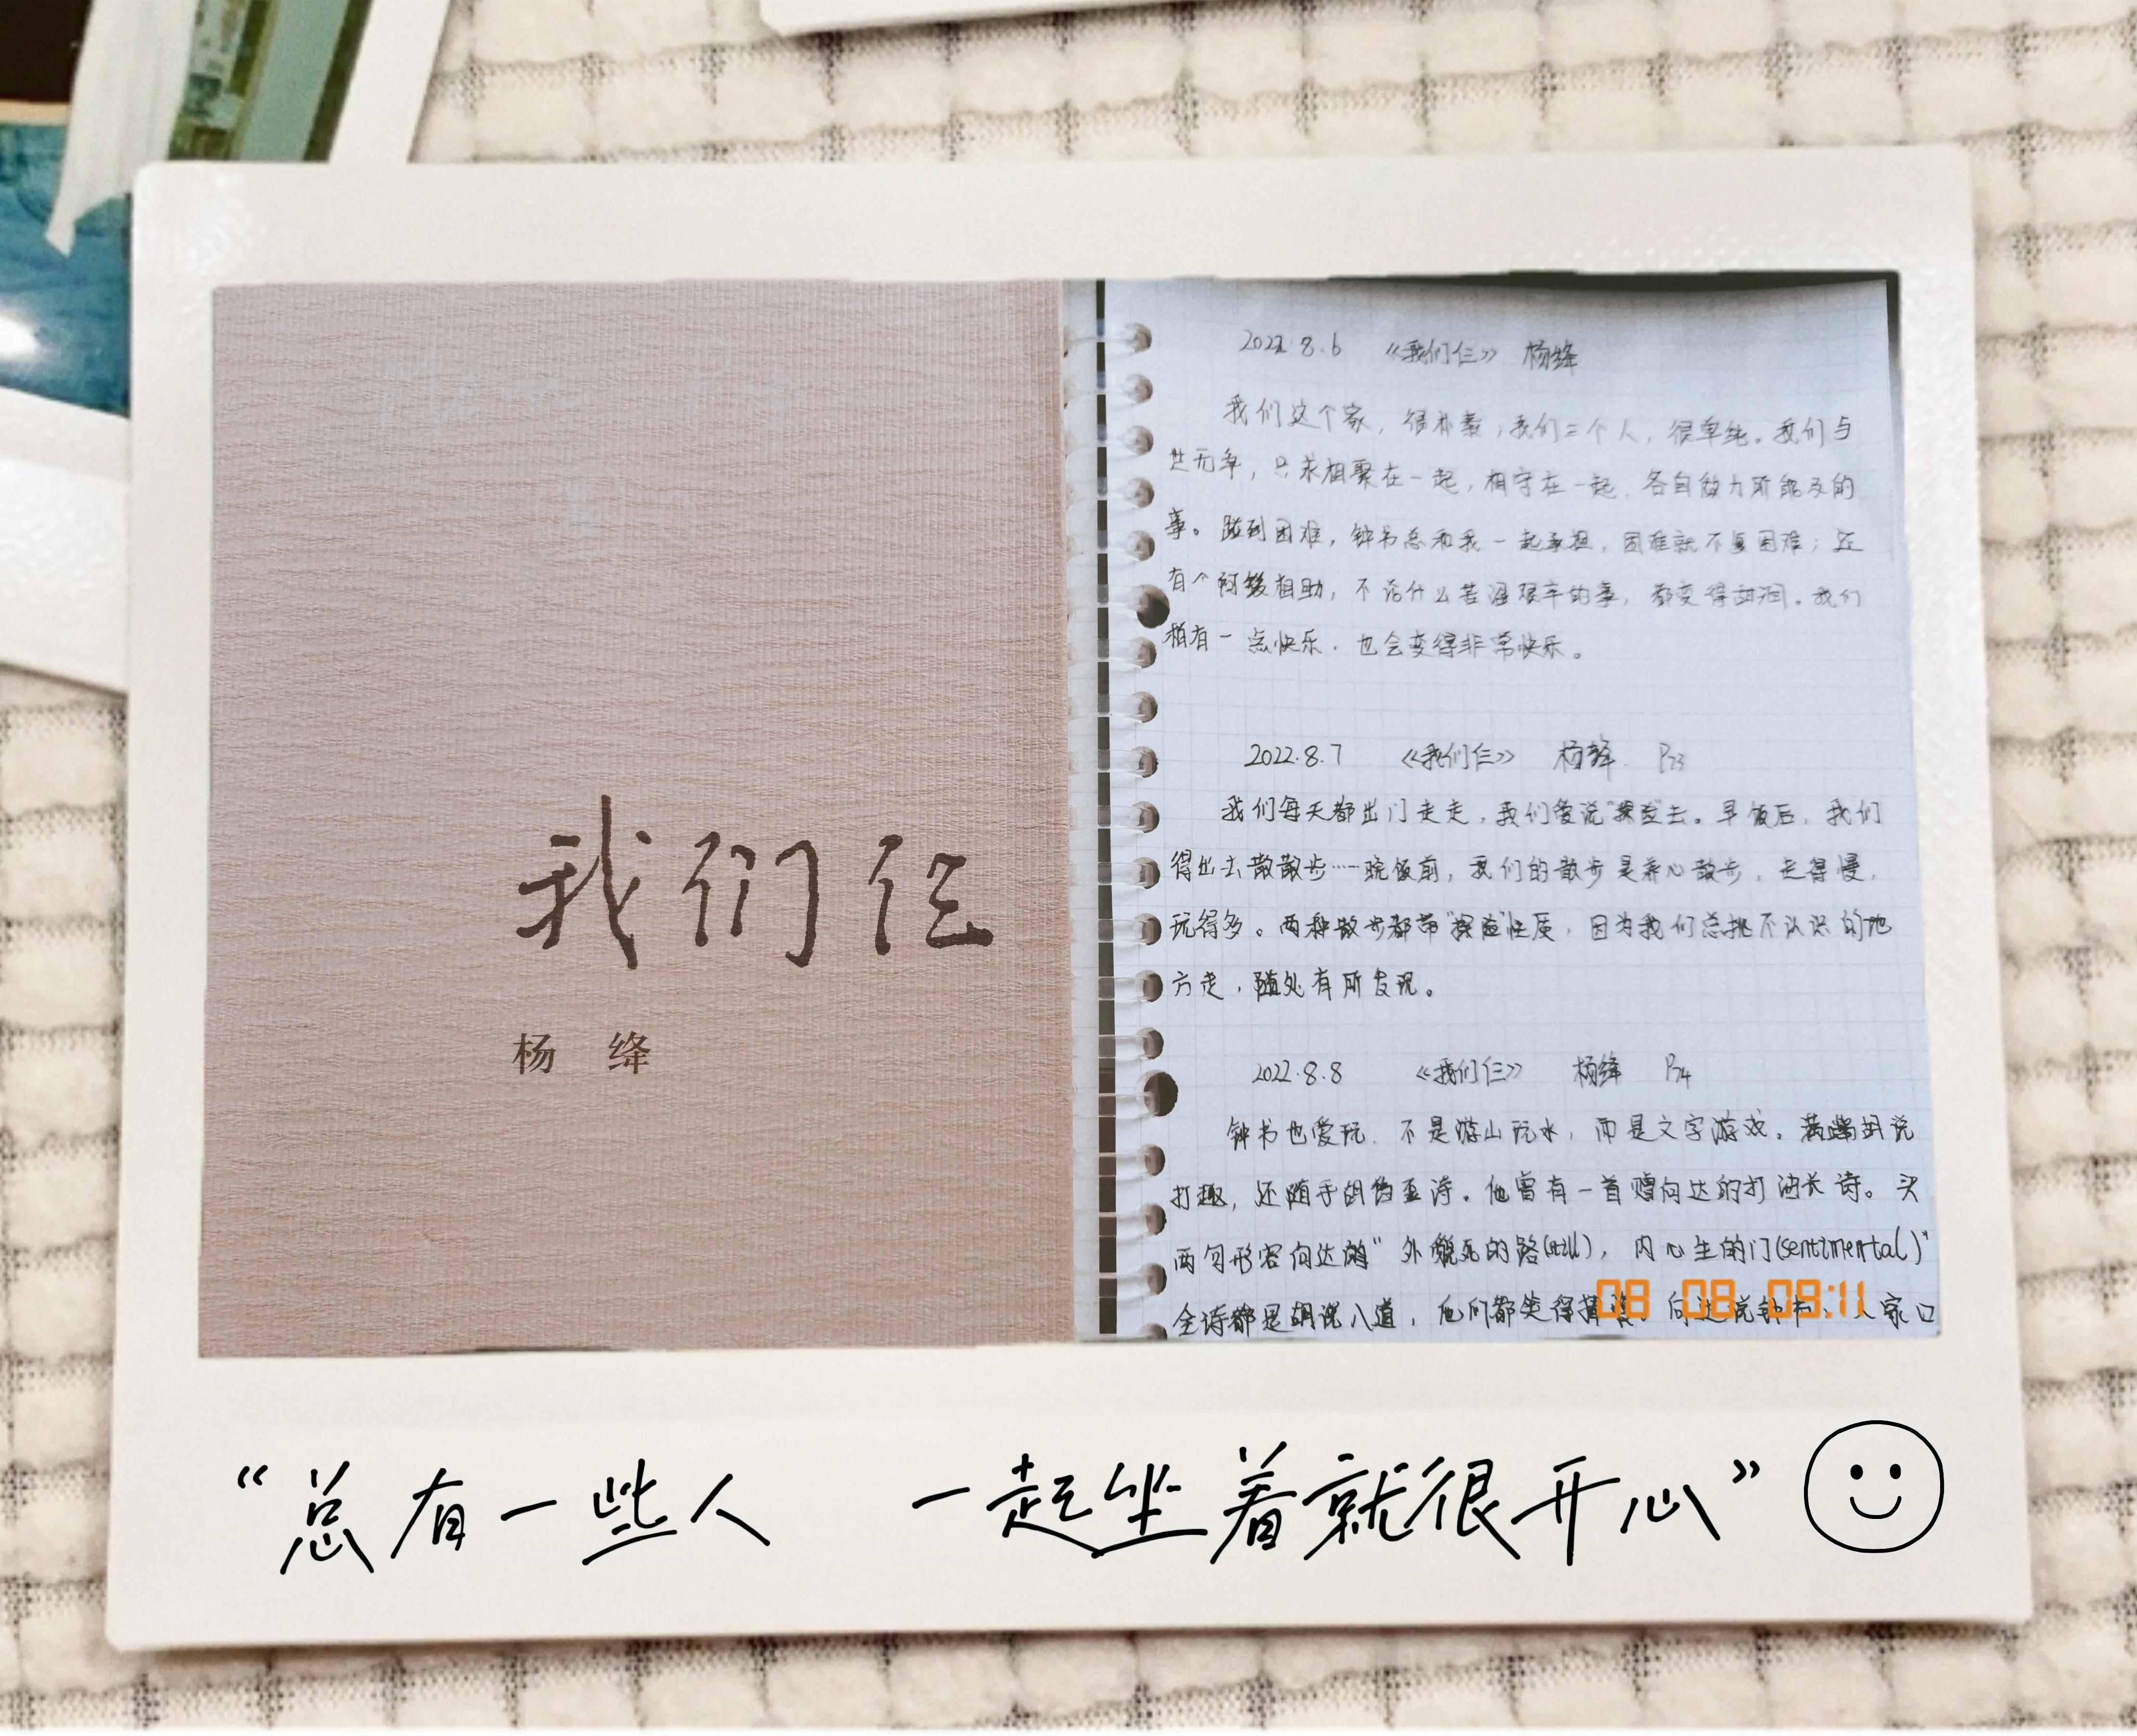 我们仨
杨 绛
2022.8.6 《我们仨》 杨绛
我们这个家，很朴素；我们三个人，很单纯。我们与
世无争，只求相聚在一起，相守在一起，各自做力所能及的
事。碰到困难，钟书总和我一起承担，困难就不复困难；还
有个阿瑗相助，不论什么苦涩艰辛的事，都变得甜润。我们
稍有一点快乐，也会变得非常快乐。
2022.8.7 《我们仨》 杨绛 P73
我们每天都出门走走，我们爱说“探险”去。早饭后，我们
得出去散散步……晚饭前，我们的散步是养心散步，走得慢，
玩得多。两种散步都带“探险”性质，因为我们总挑不认识的地
方走，随处有所发现。
2022.8.8 《我们仨》 杨绛 P74
钟书也爱玩，不是游山玩水，而是文字游戏。满嘴胡说
打趣，还随手胡诌歪诗。他曾有一首赠向达的打油长诗。头
两句形容向达的“外貌死的路(still)，内心生的门(sentimental)”
全诗都是胡说八道，他们都笑得捧 向达说钟书：人家口
08 08 09:11
“总有一些人 一起坐着就很开心”